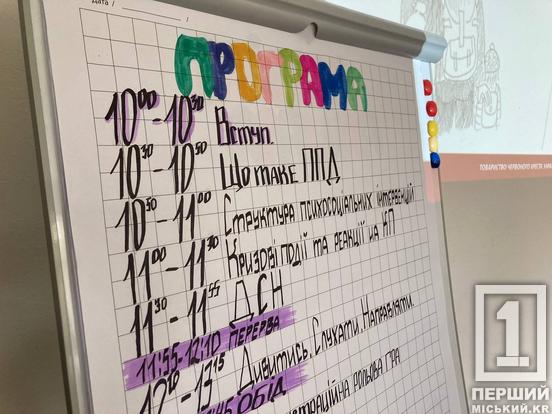 Дата / /
ПРОГРАМА
10⁰⁰-10³⁰ Вступ.
10³⁰-10⁵⁰ Що таке ППД
10⁵⁰-11⁰⁰ Структура психосоціальних інтервенцій
11⁰⁰-11³⁰ Кризові події та реакції на КП
11³⁰-11⁵⁵ ДСН
11:55-12:10 ПЕРЕРВА
12¹⁰-13¹⁵ Дивитись. Слухати. Направляти.
ОБІД
рольова гра
ТОВАРИСТВО ЧЕРВОНОГО ХРЕСТА
1
ПЕРШИЙ
МІСЬКИЙ.KR